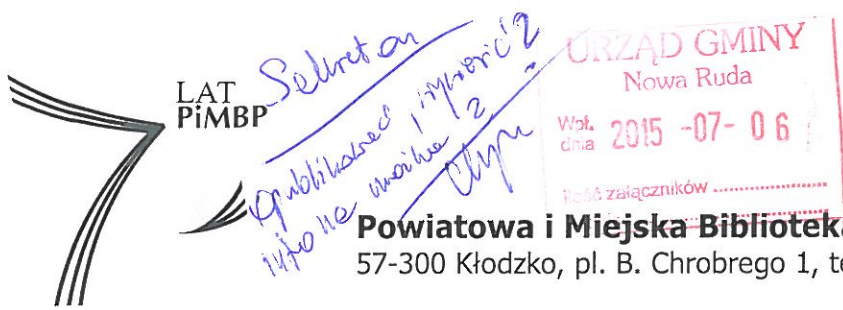 LAT
PiMBP
Sekretarz
opublikować
na
URZĄD GMINY
Nowa Ruda
Wpł.
dnia 2015 -07- 06
Ilość załączników
Powiatowa i Miejska Biblioteka
57-300 Kłodzko, pl. B. Chrobrego 1, te